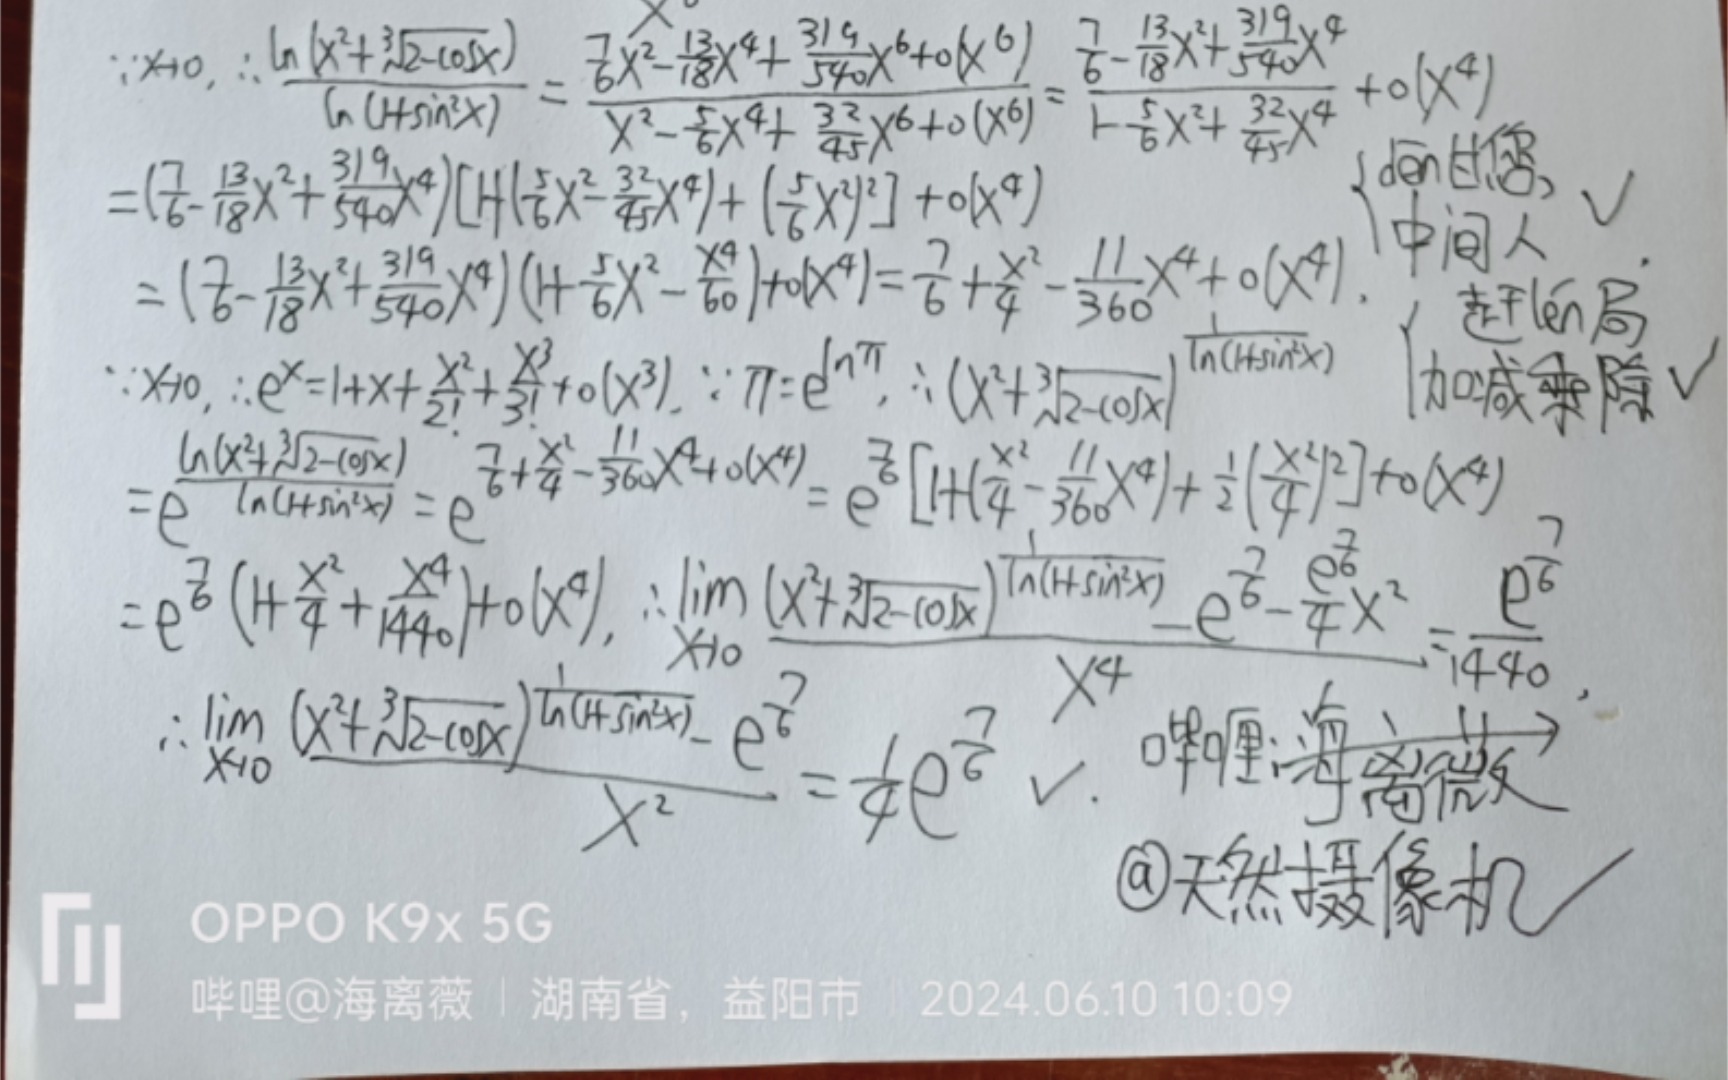 ∵x→0, ∴ ln(x²+∛(2-cosx)) / ln(1+sin²x) = (7/6x²-13/18x⁴+319/540x⁶+o(x⁶)) / (x²-5/6x⁴+32/45x⁶+o(x⁶)) = (7/6-13/18x²+319/540x⁴) / (1-5/6x²+32/45x⁴) +o(x⁴)
=(7/6-13/18x²+319/540x⁴)[1+(5/6x²-32/45x⁴)+(5/6x²)²]+o(x⁴)
中间人 ✓
=(7/6-13/18x²+319/540x⁴)(1+5/6x²-x⁴/60)+o(x⁴)=7/6+x²/4-11/360x⁴+o(x⁴).
∵x→0, ∴eˣ=1+x+x²/2!+x³/3!+o(x³), ∵π=e^(lnπ), ∴(x²+∛(2-cosx))^(1/ln(1+sin²x))
加减乘除✓
=e^(ln(x²+∛(2-cosx))/ln(1+sin²x))=e^(7/6+x²/4-11/360x⁴+o(x⁴))=e^(7/6)[1+(x²/4-11/360x⁴)+1/2(x²/4)²]+o(x⁴)
=e^(7/6)(1+x²/4+x⁴/1440)+o(x⁴), ∴lim x→0 ((x²+∛(2-cosx))^(1/ln(1+sin²x))-e^(7/6)-e^(7/6)/4x²)/x⁴=e^(7/6)/1440,
∴lim x→0 ((x²+∛(2-cosx))^(1/ln(1+sin²x))-e^(7/6))/x²=1/4e^(7/6) ✓.
哔哩:海离薇
@天然摄像机✓
OPPO K9x 5G
哔哩@海离薇 | 湖南省，益阳市 | 2024.06.10 10:09